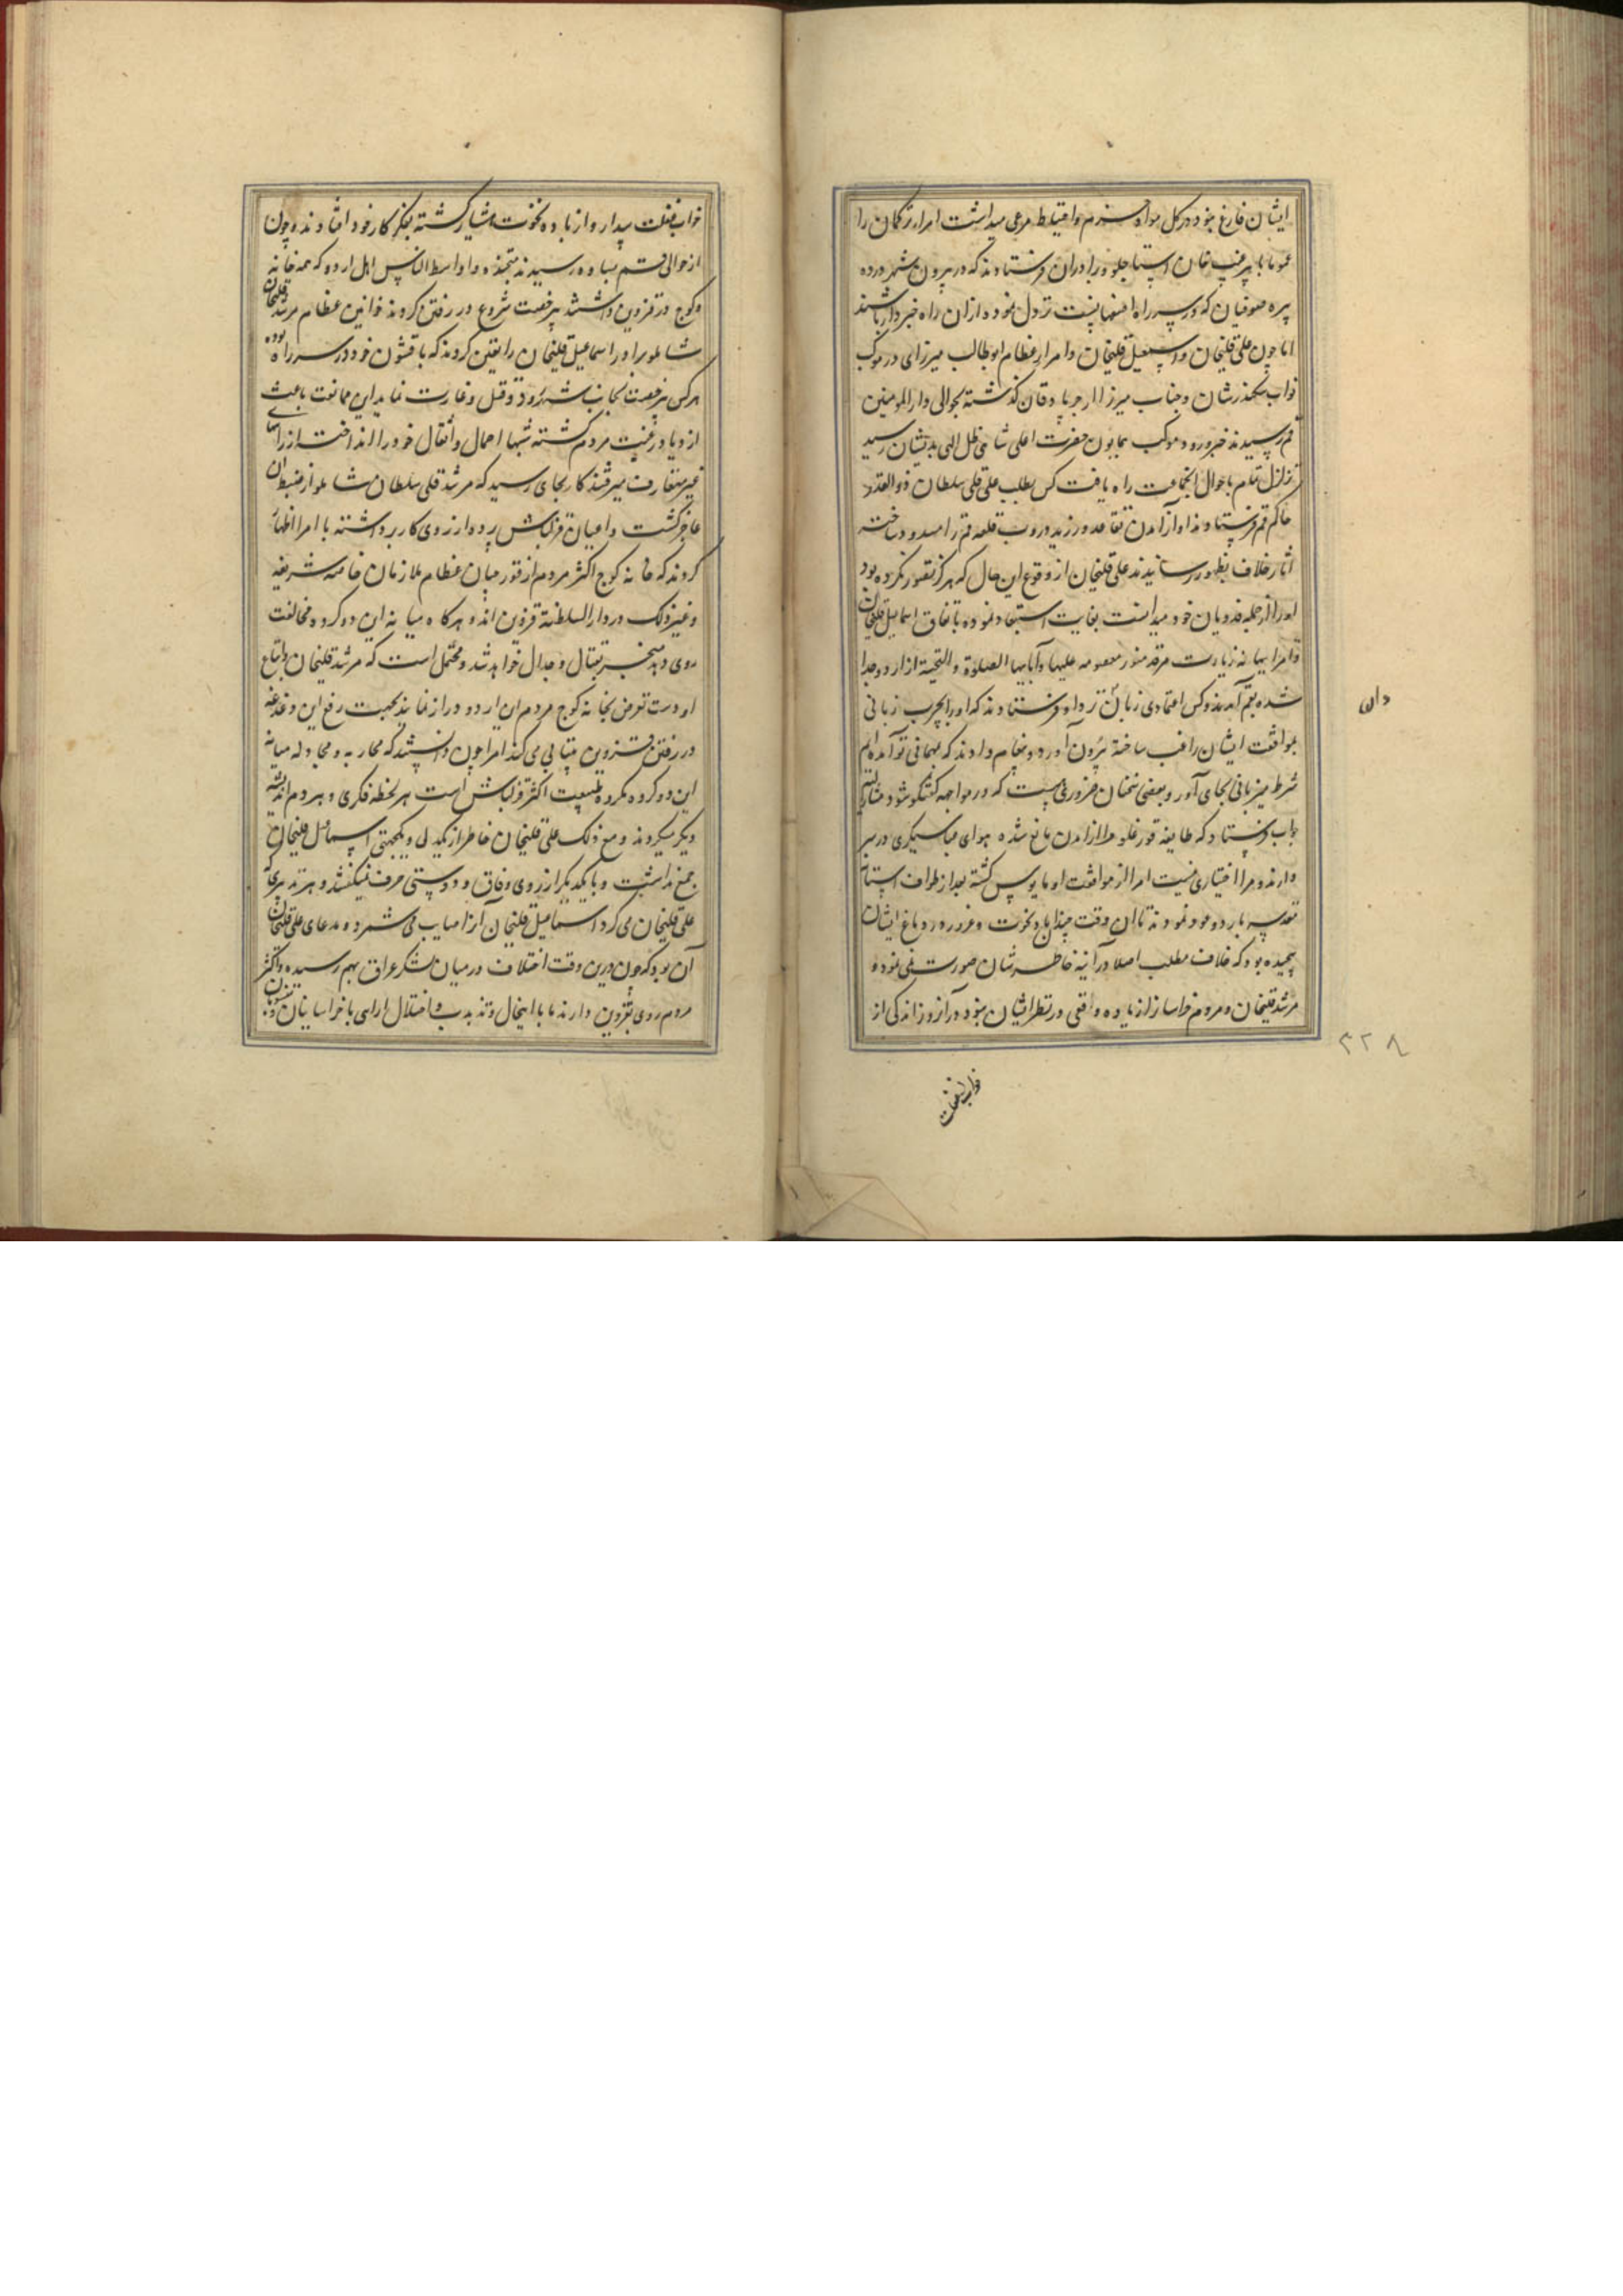 ایشان فارغ نبود در کل مواد حزم و احتیاط مرعی میداشت امراء ترکمان را
عموما با پیر غیب خان استاجلو و برادران فرستادند که در بیرون شهر در ده
پیره صوفیان که در سر راه اصفهانست نزول نموده از آن راه خبردار باشند
اما چون علی قلیخان و اسمعیل قلیخان و امراء عظام ابوطالب میرزای در موکب
نواب سکندر شان و جناب میرزا از جرباذقان گذشته بحوالی دار المومنین
قم رسیدند خبر ورود موکب همایون حضرت اعلی شاهی ظل الهی بدیشان رسید
تزلزل تمام باحوال آنجماعت راه یافت کس بطلب علی قلی سلطان ذوالقدر
حاکم قم فرستادند او از آمدن تقاعد ورزیده دروب قلعه قم را مسدود ساخته
آثار خلاف بظهور رسانیدند علی قلیخان از وقوع این حال که هرگز تصور نکرده بود
او را از جمله فدویان خود میدانست بغایت استبعاد نموده باتفاق اسماعیل قلیخان
و امرا ببهانه زیارت مرقد منور معصومه علیها و آبایها الصلوة و التحیة از اردو جدا
شده بقم آمدند و کس اعتمادی زبان دان نزد او فرستادند که او را بچرب زبانی
بموافقت ایشان راغب ساخته بیرون آورد و پیغام دادند که بمهمانی تو آمده ایم
شرط میزبانی بجای آور و بعضی سخنان ضروری هست که در مواجهه گفتگو شود مشار الیه
جواب فرستاد که طایفه قورغلو مرا از آمدن مانع شده هوای عباسیگری در سر
دارند و مرا اختیاری نیست امرا از موافقت او مایوس گشته بعد از طواف آستانه
مقدسه باردو عود نمودند تا آن وقت چندان باد نخوت و غرور در دماغ ایشان
پیچیده بود که خلاف مطلب اصلا در آینه خاطرشان صورت نمی نمود و
مرشد قلیخان و مردم خراسان را زیاده وقعی در نظر ایشان نبود در آن روز اندکی از
خواب غفلت
۳۲۸
خواب غفلت بیدار و از باده نخوت هشیار گشته بفکر کار خود افتادند و چون
از حوالی قم بساوه رسیدند متجنده و اواسط الناس اهل اردو که همه خانه
و کوچ در قزوین داشتند بیرخصت شروع در رفتن کردند خوانین عظام مرشد قلیخان
شاملو برادر اسماعیل قلیخان را تعیین کردند که با قشون خود در سر راه بوده
هر کس بیرخصت بجانب شهر رود قتل و غارت نماید این ممانعت باعث
ازدیاد رغبت مردم گشته شبها احمال و اثقال خود را انداخته از راههای
غیر متعارف میرفتند کار بجای رسید که مرشد قلی سلطان شاملو از ضبط آن
عاجز گشت و اعیان قزلباش پرده از روی کار برداشته با امرا اظهار
کردند که خانه کوچ اکثر مردم از قورچیان عظام ملازمان خاصه شریفه
و غیر ذلک در دار السلطنة قزوین اند و هرگاه میانه این دو گروه مخالفت
روی دهد منجر بقتال و جدال خواهد شد و محتمل است که مرشد قلیخان و اتباع
او دست تعرض بخانه کوچ مردم این اردو دراز نمایند بجهت رفع این دغدغه
در رفتن قزوین بیتابی می کنند امرا چون دانستند که محاربه و مجادله میانه
این دو گروه مکروه طبیعت اکثر قزلباش است هر لحظه فکری و هر دم اندیشه
دیگر میکردند و مع ذلک علی قلیخان خاطر از یکدلی و یکجهتی اسماعیل قلیخان
جمع نداشت و با یکدیگر از روی وفاق و دوستی حرف نمیگفتند و هر تدبیری که
علی قلیخان می کرد اسماعیل قلیخان آنرا صایب نمی شمرد و مدعای علی قلیخان
آن بود که چون درین وقت اختلاف در میان لشکر عراق بهم رسیده و اکثر
مردم روی بقزوین دارند ما با اینحال و تذبذب و اختلال ارای با خراسانیان و منسوبان